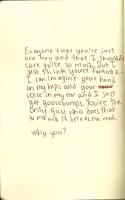 Everyone says you're just
one boy and that I shouldn't
care quite so much. But I
just think you're
I can imagine your hand
on my hips and your
voice in my ear and I just
get goosebumps. You're the
only guy who does that
to me and it drives me mad.
Why you?